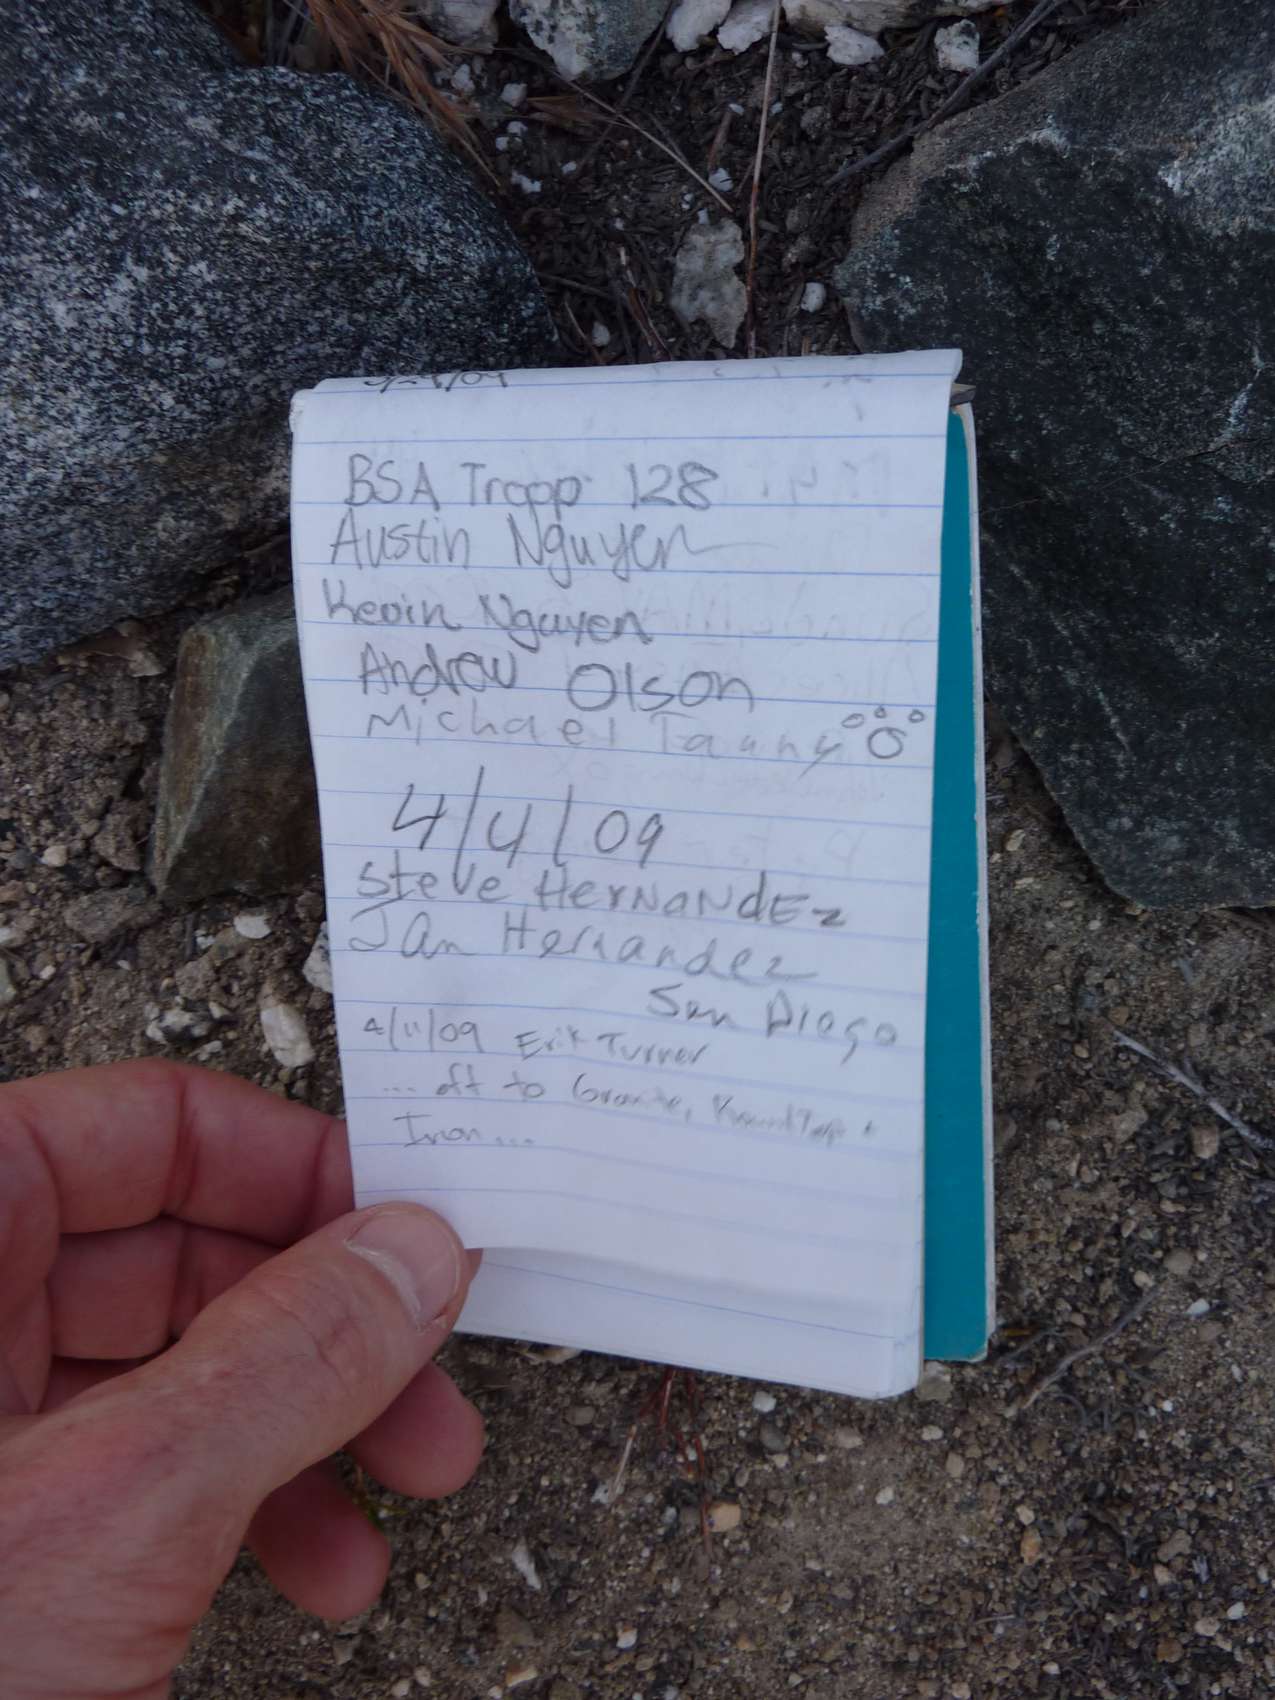 BSA Tropp 128
Austin Nguyen
Kevin Nguyen
Andrew Olson
Michael Tauny
4/4/09
Steve HerNaNdEz
JAn Hernandez
San Diego
4/11/09 Erik Turner
... off to Granite, Round Top +
Iron...